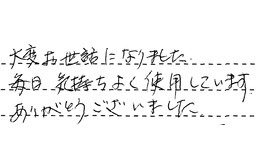 大変お世話になりました
毎日、気持ちよく使用しています
ありがとうございました